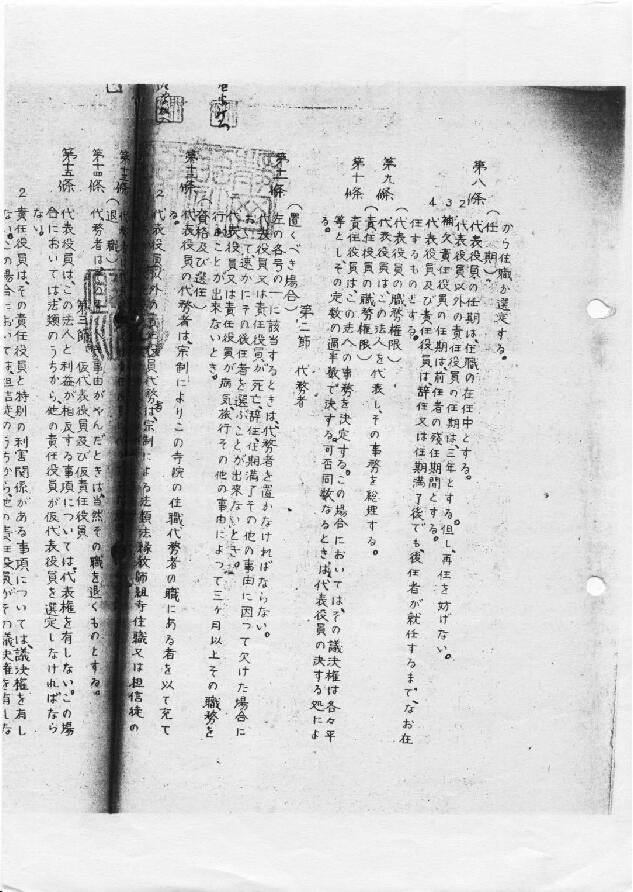 から住職が選定する。
(任期)
第八條 代表役員の任期は、住職の在任中とする。
2 代表役員以外の責任役員の任期は、三年とする。但し、再任を妨げない。
3 補欠責任役員の任期は、前任者の残任期間とする。
4 代表役員及び責任役員は、辞任又は任期満了後でも、後任者が就任するまで、なお在
任するものとする。
(代表役員の職務権限)
第九條 代表役員はこの法人を代表し、その事務を総理する。
(責任役員の職務権限)
第十條 責任役員は、この法人の事務を決定する。この場合においては、その議決権は各々平
等とし、その定数の過半数で決する。可否同数なるときは、代表役員の決する処によ
る。
第二節 代務者
(置くべき場合)
第十一條 左の各号の一に該当するときは、代務者を置かなければならない。
代表役員又は責任役員が死亡、辞任、任期満了その他の事由に因つて欠けた場合に
おいて速かにその後任者を選ぶことが出来ないとき。
代表役員又は責任役員が病気旅行その他の事由によつて三ヶ月以上その職務を
行ふことが出来ないとき。
(資格及び選任)
第十二條 代表役員の代務者は、宗制によりこの寺院の住職代務者の職にある者を以て充て
る。
2 代表役員以外の責任役員代務者は、宗制による法類法縁教師組寺住職又は担信徒の
(退職)
第十四條 代務者は 事由がやんだときは、当然その職を退くものとする。
第三節 仮代表役員及び仮責任役員
第十五條 代表役員は、この法人と利益が相反する事項については、代表権を有しない。この場
合においては、法類のうちから、他の責任役員が仮代表役員を選定しなければなら
ない。
2 責任役員は、その責任役員と特別の利害関係がある事項については、議決権を有し
ない。この場合においては、担信徒のうちから、他の責任役員がその議決権を有しな